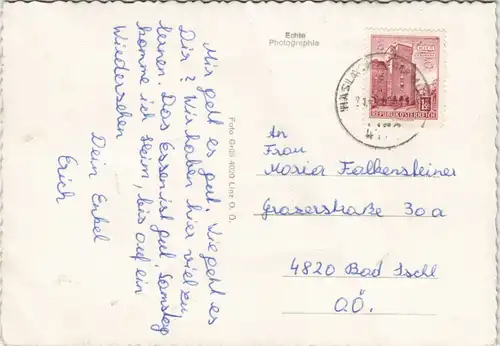 Mir geht es gut. Wie geht es
Dir? Wir haben hier viel zu
lernen. Das Essen ist gut. Samstag
komme ich heim, bis auf ein
Wiedersehen
Dein Enkel
Erich
Foto Grill 4020 Linz O. Ö.
Echte
Photographie
REPUBLIK ÖSTERREICH
An
Frau
Maria Falkensteiner
Grazerstraße 30a
4820 Bad Ischl
OÖ.